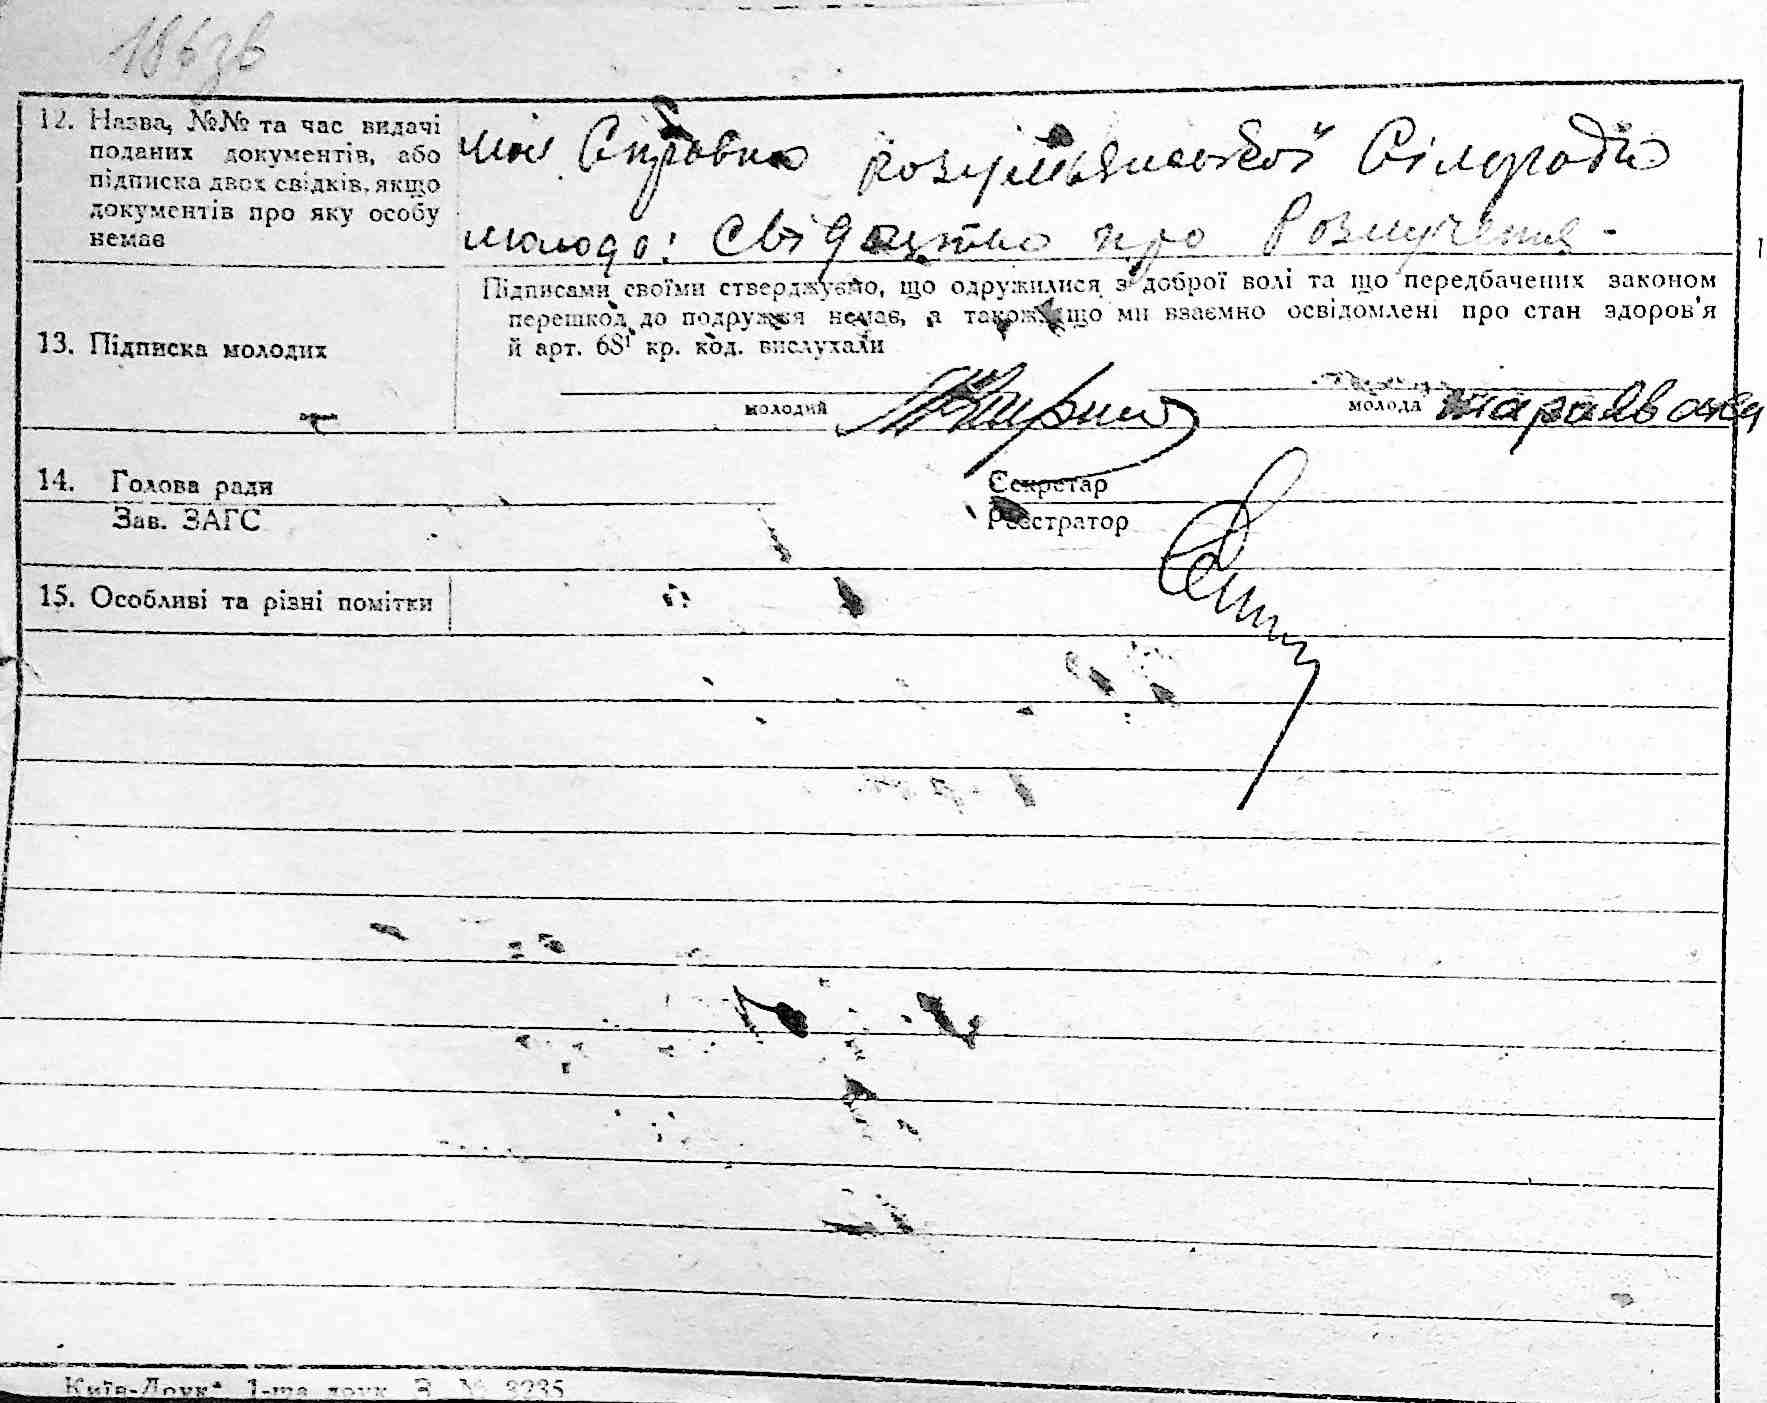 186зв
12. Назва, №№ та час видачі
поданих документів, або
підписка двох свідків, якщо
документів про яку особу
немає
Справка Сілради
молода: свідоцтво про Розлучення -
13. Підписка молодих
Підписами своїми стверджуємо, що одружилися з доброї волі та що передбачених законом
перешкод до подружжя немає, а також що ми взаємно освідомлені про стан здоров'я
й арт. 68¹ кр. код. вислухали
молодий молода
14. Голова ради Секретар
Зав. ЗАГС Реєстратор
15. Особливі та різні помітки
Київ-Друк" 1-ша друк. З. № 8235